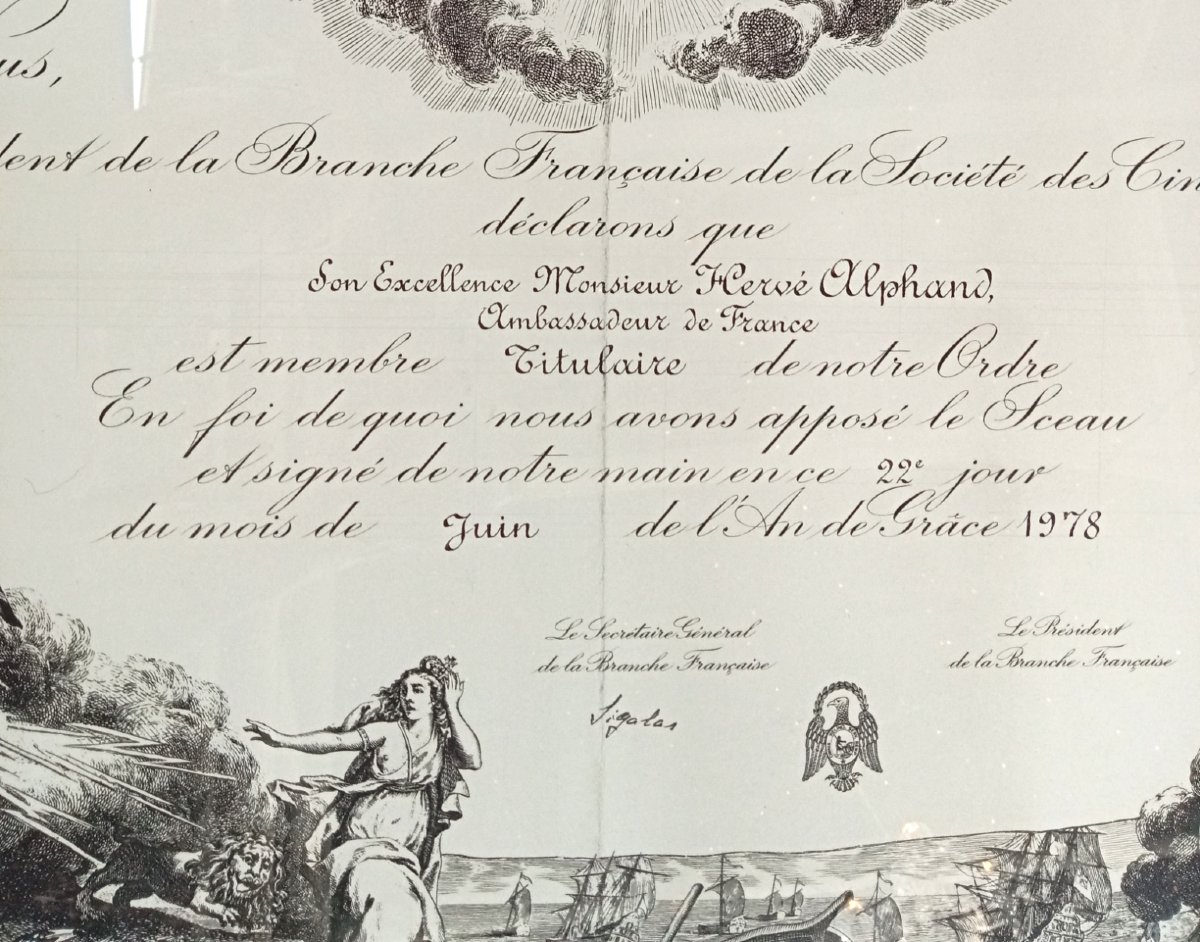 us,
dent de la Branche Française de la Société des Cin
déclarons que
Son Excellence Monsieur Hervé Alphand,
Ambassadeur de France
est membre Titulaire de notre Ordre
En foi de quoi nous avons apposé le Sceau
et signé de notre main en ce 22e jour
du mois de Juin de l'An de Grâce 1978
Le Secrétaire Général
de la Branche Française
Le Président
de la Branche Française
Sigalas